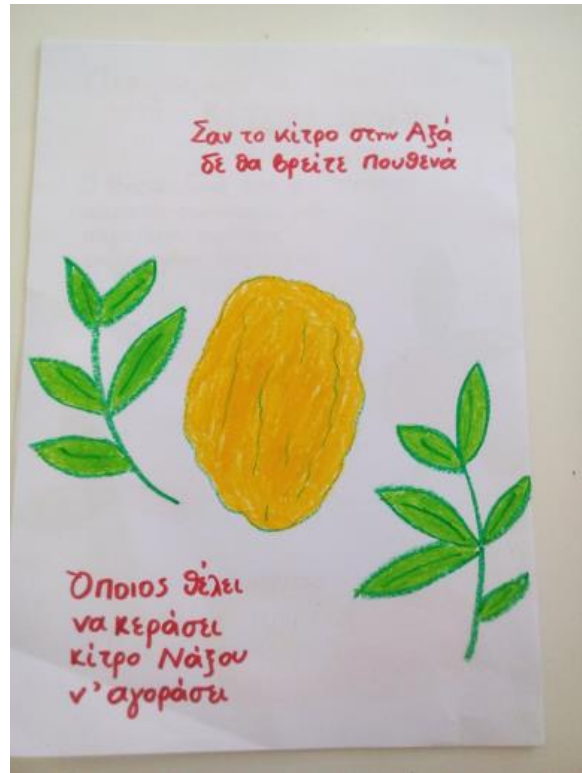 Σαν το κίτρο στην Αξά
δε θα βρείτε πουθενά
Όποιος θέλει
να κεράσει
κίτρο Νάξου
ν' αγοράσει